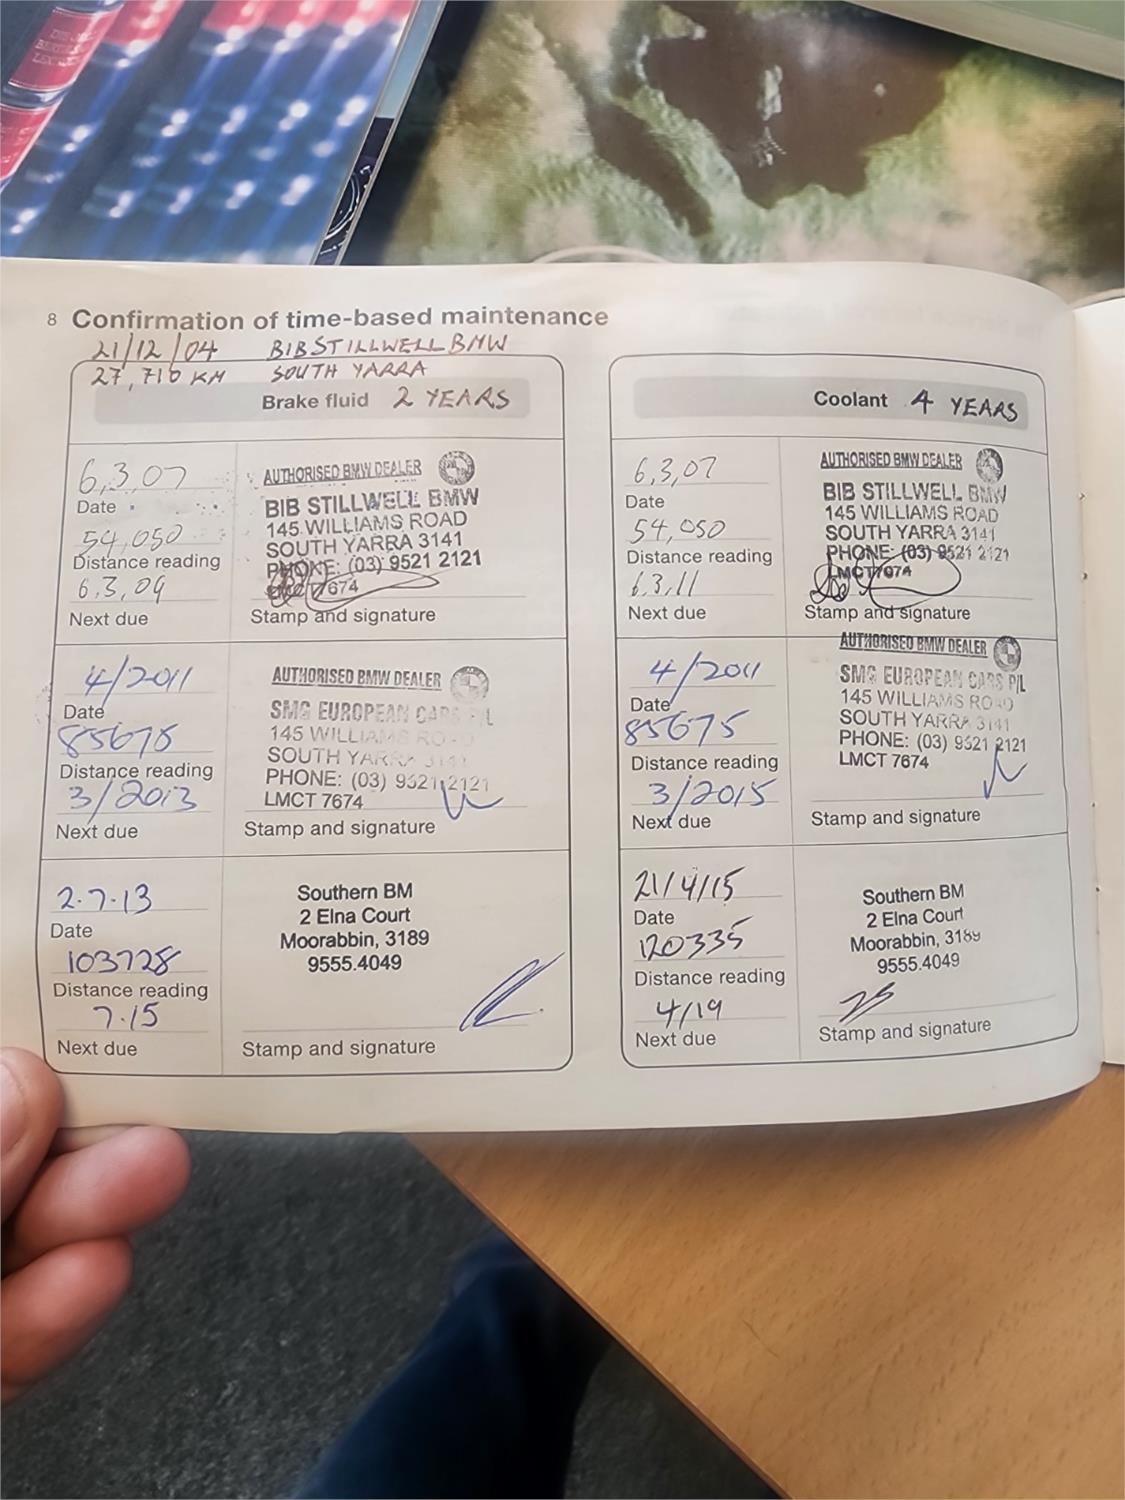 8 Confirmation of time-based maintenance
21/12/04 BIB STILLWELL BMW
27,710 KM SOUTH YARRA
Brake fluid 2 YEARS
6,3,07
Date
54,050
Distance reading
6,3,09
Next due
AUTHORISED BMW DEALER
BIB STILLWELL BMW
145 WILLIAMS ROAD
SOUTH YARRA 3141
PHONE: (03) 9521 2121
LMCT 7674
Stamp and signature
4/2011
Date
85675
Distance reading
3/2013
Next due
AUTHORISED BMW DEALER
SMG EUROPEAN CARS P/L
145 WILLIAMS ROAD
SOUTH YARRA 3141
PHONE: (03) 9521 2121
LMCT 7674
Stamp and signature
2.7.13
Date
103728
Distance reading
7.15
Next due
Southern BM
2 Elna Court
Moorabbin, 3189
9555.4049
Stamp and signature
Coolant 4 YEARS
6,3,07
Date
54,050
Distance reading
6.3.11
Next due
AUTHORISED BMW DEALER
BIB STILLWELL BMW
145 WILLIAMS ROAD
SOUTH YARRA 3141
PHONE: (03) 9521 2121
LMCT 7674
Stamp and signature
4/2011
Date
85675
Distance reading
3/2015
Next due
AUTHORISED BMW DEALER
SMG EUROPEAN CARS P/L
145 WILLIAMS ROAD
SOUTH YARRA 3141
PHONE: (03) 9521 2121
LMCT 7674
Stamp and signature
21/4/15
Date
120335
Distance reading
4/19
Next due
Southern BM
2 Elna Court
Moorabbin, 3189
9555.4049
Stamp and signature